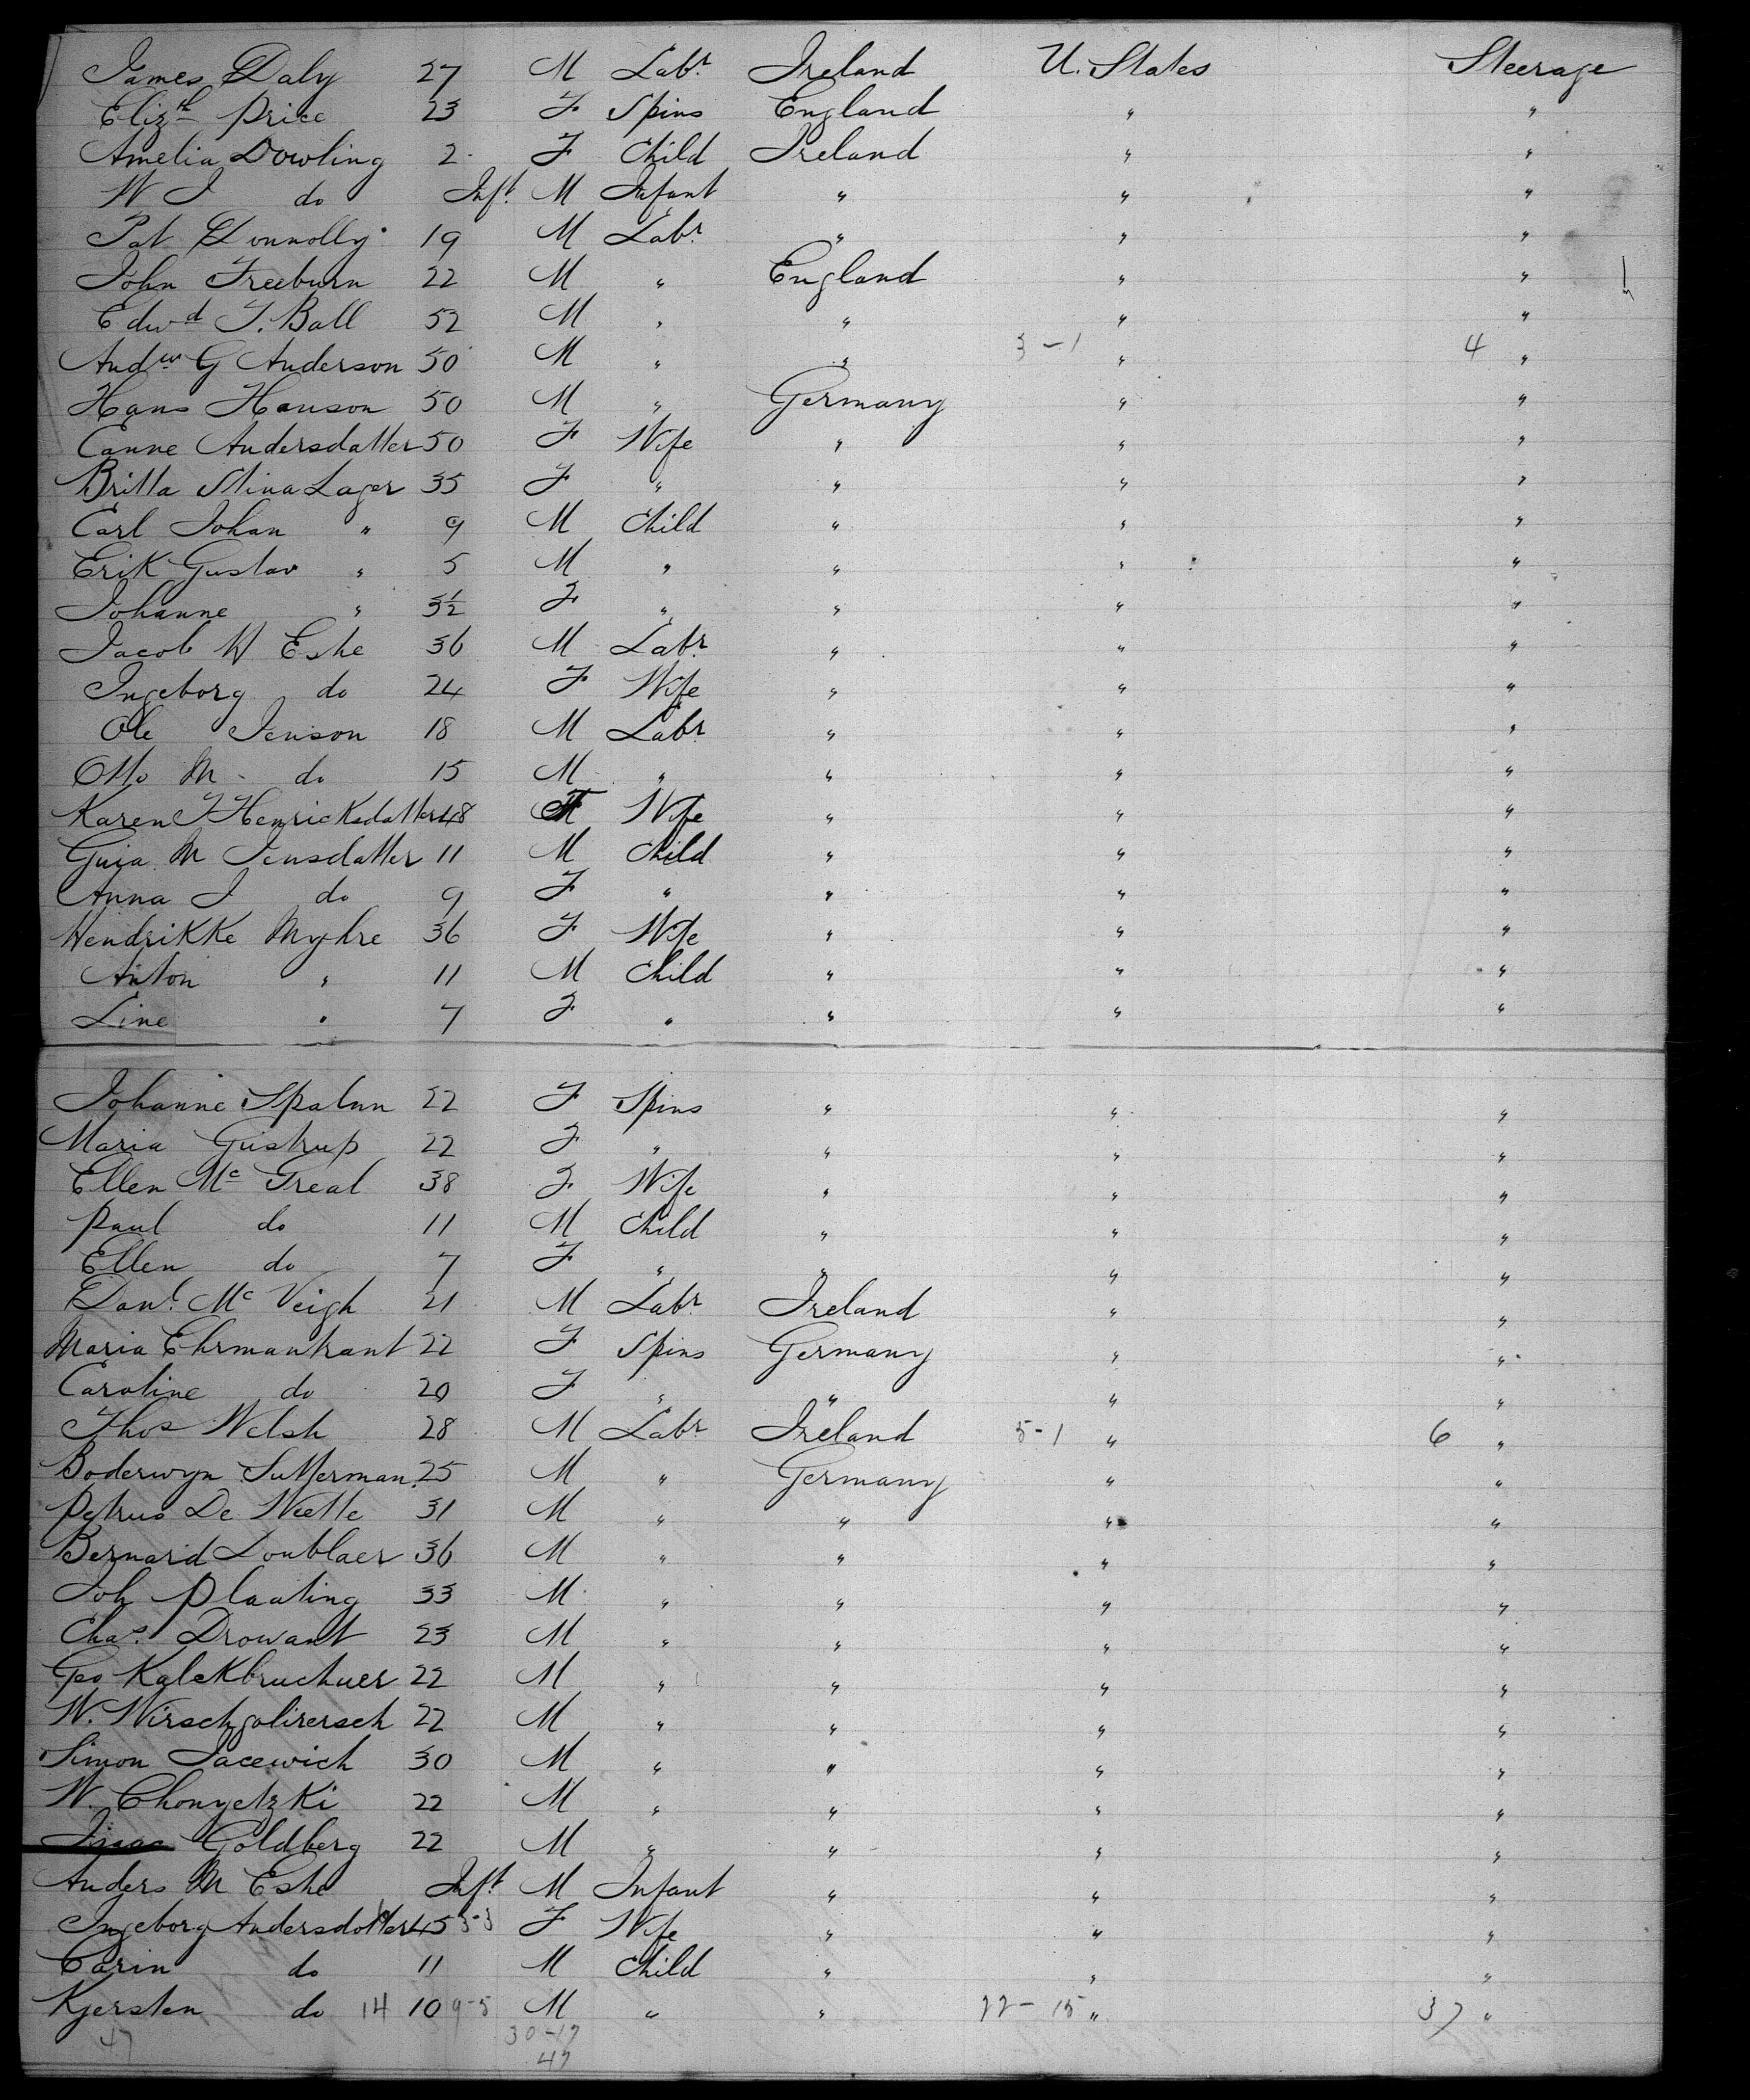 James Daly 27 M Labr. Ireland U. States Steerage
Elizth Price 23 F Spins England " "
Amelia Dowling 2 F Child Ireland " "
W J do Inft. M Infant " " "
Pat Donnolly 19 M Labr. " " "
John Freeburn 22 M " England " "
Edwd T. Ball 52 M " " " "
Andw G Anderson 50 M " " 3-1 " 4 "
Hans Hanson 50 M " Germany " "
Canne Andersdatter 50 F Wife " " "
Britta Stina Lager 35 F " " " "
Carl Johan " 9 M Child " " "
Erik Gustav " 5 M " " " "
Johanne " 3½ F " " " "
Jacob W Eshe 36 M Labr. " " "
Ingeborg do 24 F Wife " " "
Ole Jenson 18 M Labr. " " "
Otto M do 15 M " " " "
Karen J Henricksdatter 48 F Wife " " "
Guia M Jensdatter 11 M Child " " "
Anna J do 9 F " " " "
Hendrikke Myhre 36 F Wife " " "
Anton " 11 M Child " " "
Line " 7 F " " " "
Johanne Spalnn 22 F Spins " " "
Maria Gustrup 22 F " " " "
Ellen Mc Greal 38 F Wife " " "
Paul do 11 M Child " " "
Ellen do 7 F " " " "
Danl. Mc Veigh 21 M Labr. Ireland " "
Maria Ehrmantrant 22 F Spins Germany " "
Caroline do 20 F " " " "
Thos Welsh 28 M Labr. Ireland 5-1 " 6 "
Boderwyn Sutterman 25 M " Germany " "
Petrus De Weette 31 M " " " "
Bernard Loublaer 36 M " " " "
Joh Plaating 33 M " " " "
Chas. Drowant 23 M " " " "
Geo Kalekbruchner 22 M " " " "
W. 22 M " " " "
Simon Jacewich 30 M " " " "
W. Chonyetzki 22 M " " " "
Isaac Goldberg 22 M " " " "
Anders M Eshe Inft. M Infant " " "
Ingeborg Andersdotter 45 3-3 F Wife " " "
Carin do 11 M Child " " "
Kjersten do 14 10 9-5 M " " 22-15 " 37 "
47 30-17
47